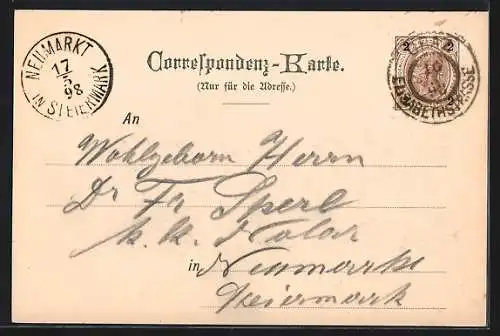 NEUMARKT
17
5
98
IN STEIERMARK
Correspondenz-Karte.
(Nur für die Adresse.)
2 2
ELISABETHSTRASSE
An
Wohlgeborn Herrn
Dr Fr Sperl
k. k. Notar
in Neumarkt
Steiermark